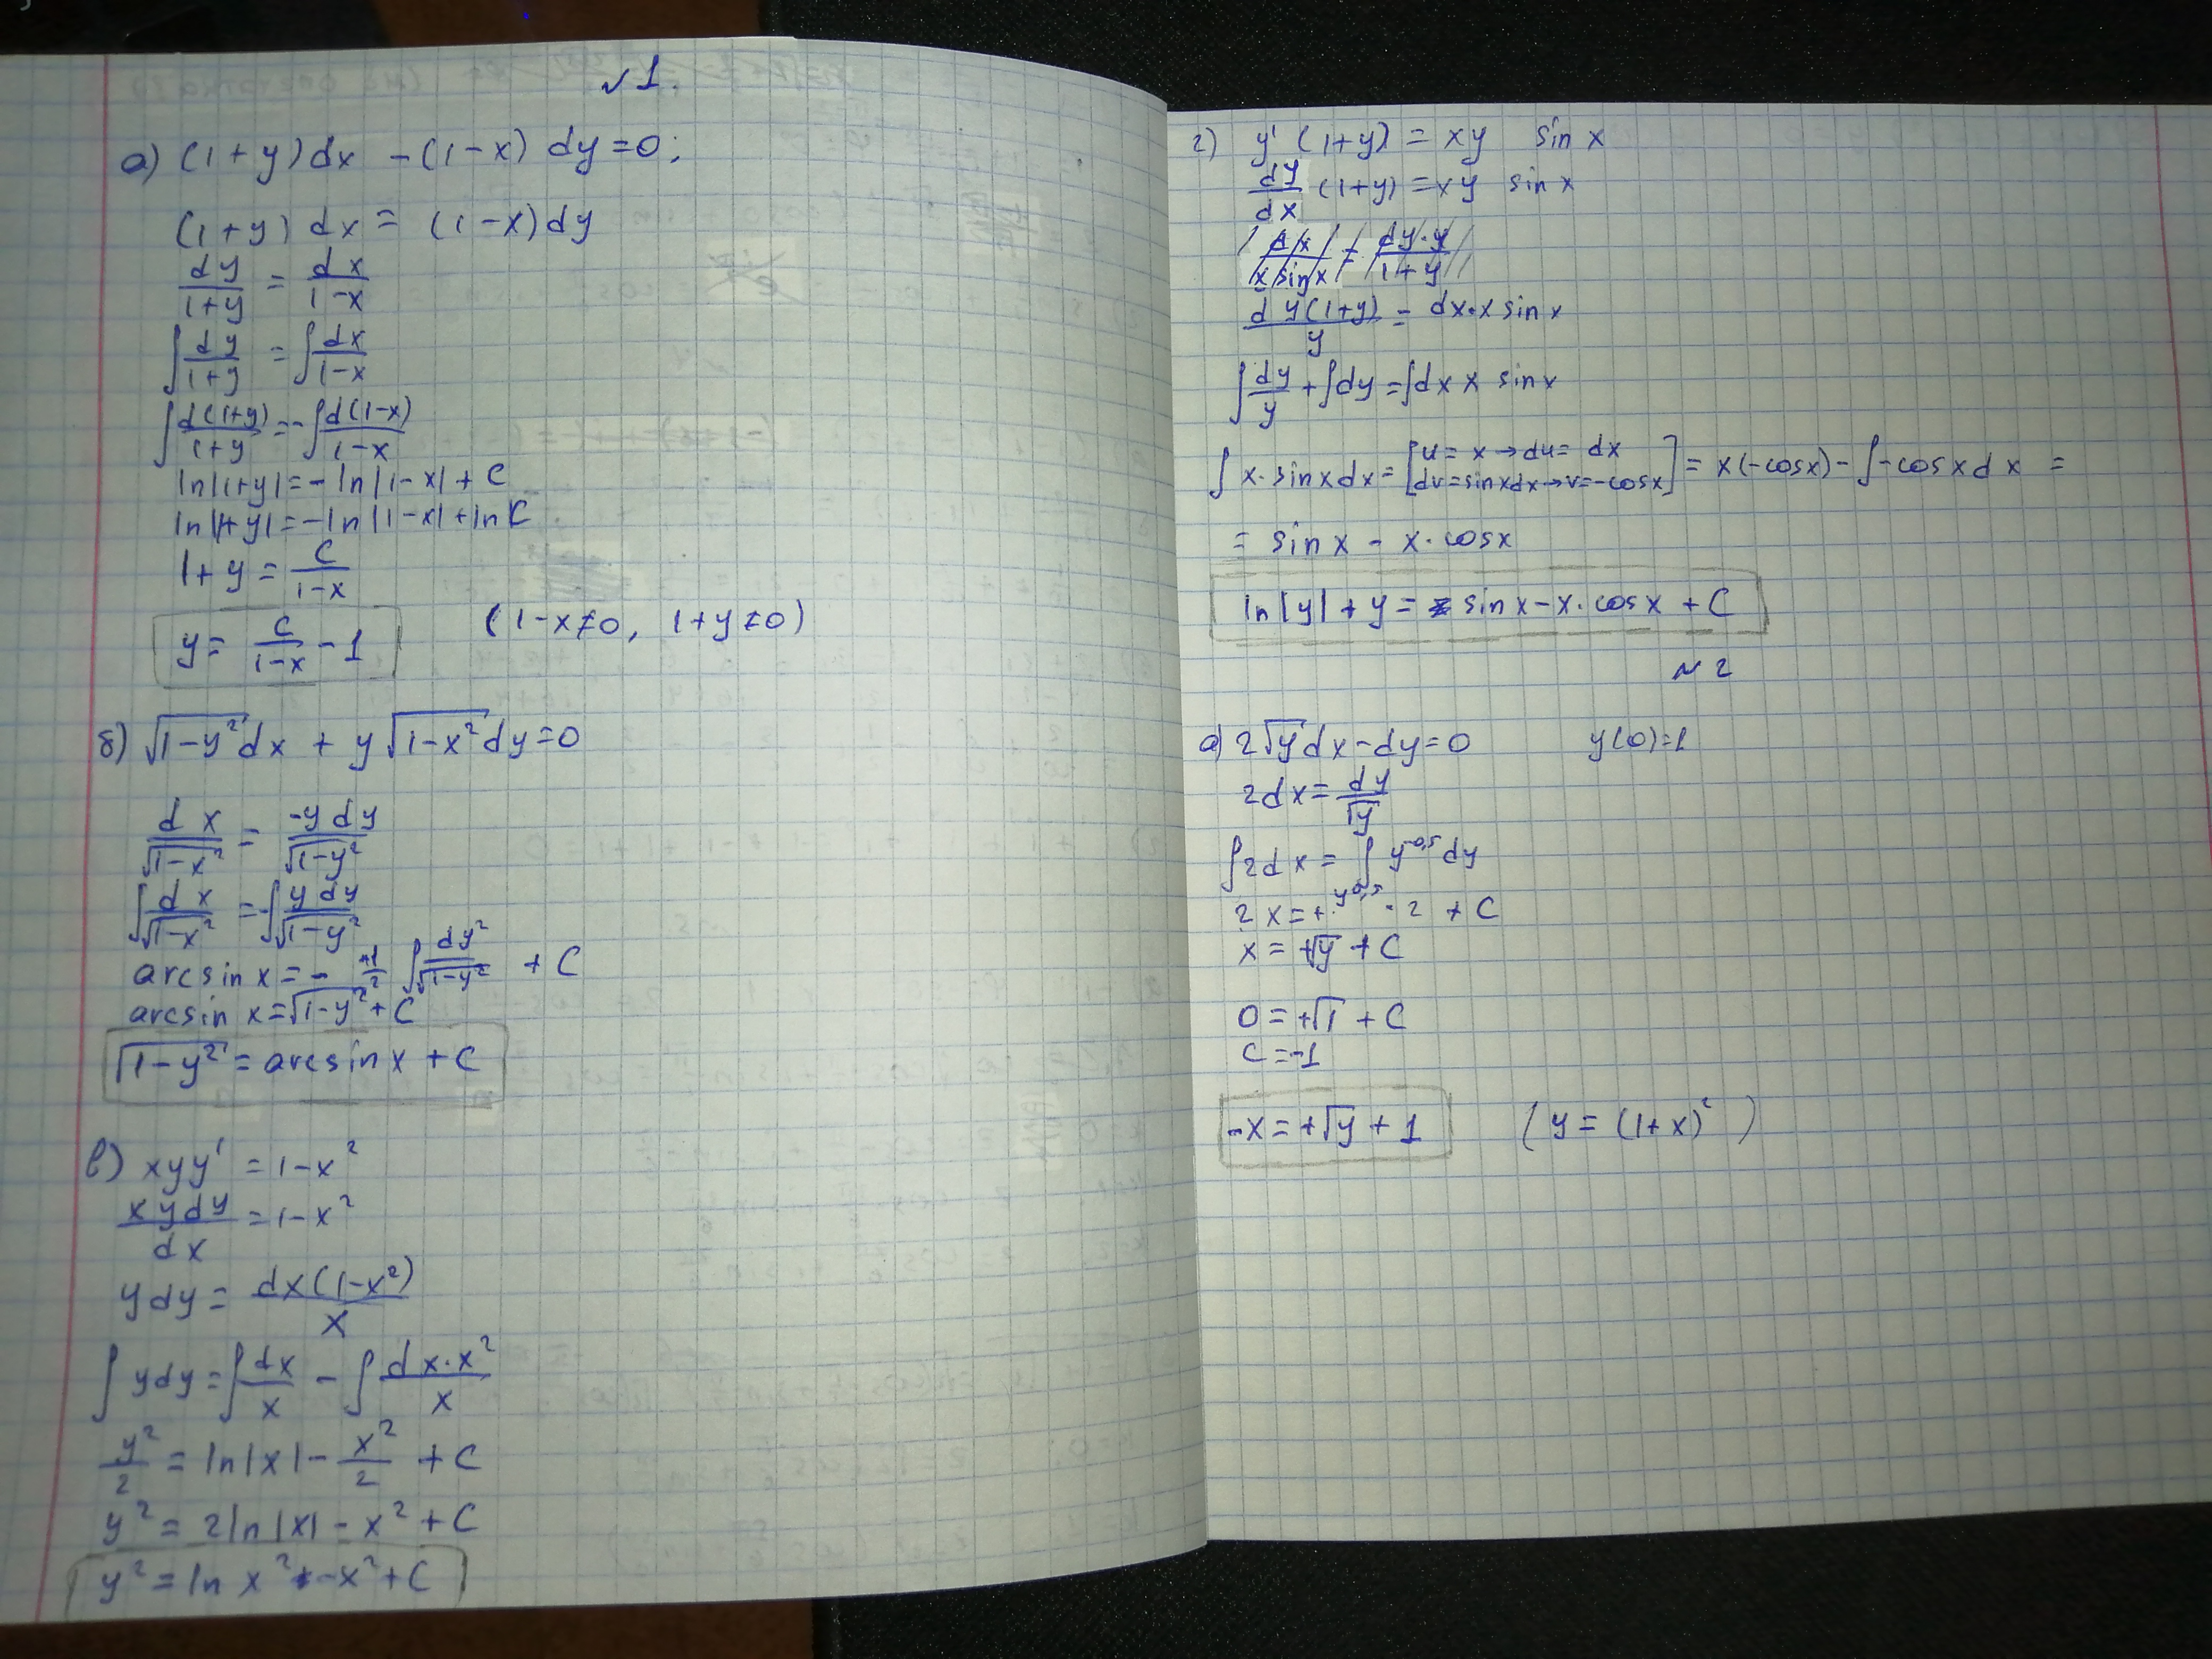 √1.
а) (1+y)dx -(1-x) dy=0;
(1+y) dx = (1-x)dy
dy/(1+y) = dx/(1-x)
∫dy/(1+y) = ∫dx/(1-x)
∫d(1+y)/(1+y) = -∫d(1-x)/(1-x)
ln|1+y|=-ln|1-x|+C
ln|1+y|=-ln|1-x|+lnC
1+y= C/(1-x)
y= C/(1-x) -1 (1-x≠0, 1+y≠0)
б) √(1-y²)dx + y√(1-x²)dy=0
dx/√(1-x²) = -ydy/√(1-y²)
∫dx/√(1-x²) =-∫ydy/√(1-y²)
arcsin x = - +1/2 ∫dy²/√(1-y²) + C
arcsin x=√(1-y²)+C
√(1-y²) = arcsin x + C
в) xyy' = 1-x²
xydy/dx =1-x²
ydy= dx(1-x²)/x
∫ydy=∫dx/x - ∫dx·x²/x
y²/2 = ln|x|- x²/2 +C
y² = 2ln|x| - x² +C
y²=ln x² -x²+C
г) y' (1+y) = xy sin x
dy/dx (1+y) =xy sin x
dy(1+y)/y = dx·x sin x
∫dy/y +∫dy=∫dx x sin x
∫x·sinxdx=[u= x→du= dx dv=sinxdx→v=-cosx]= x(-cosx)-∫-cosxdx =
= sin x - x·cosx
ln|y|+y= sin x-x·cosx +C
№2
а) 2√y dx-dy=0 y(0)=1
2dx= dy/√y
∫2dx= ∫y^-0,5 dy
2x=+·y^0,5·2 +C
x=+√y +C
0=+√1 +C
C=-1
-x=+√y+1 (y=(1+x)²)